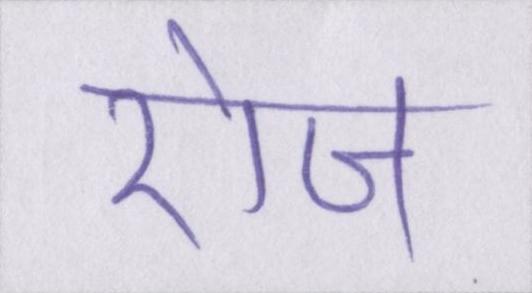 रोज